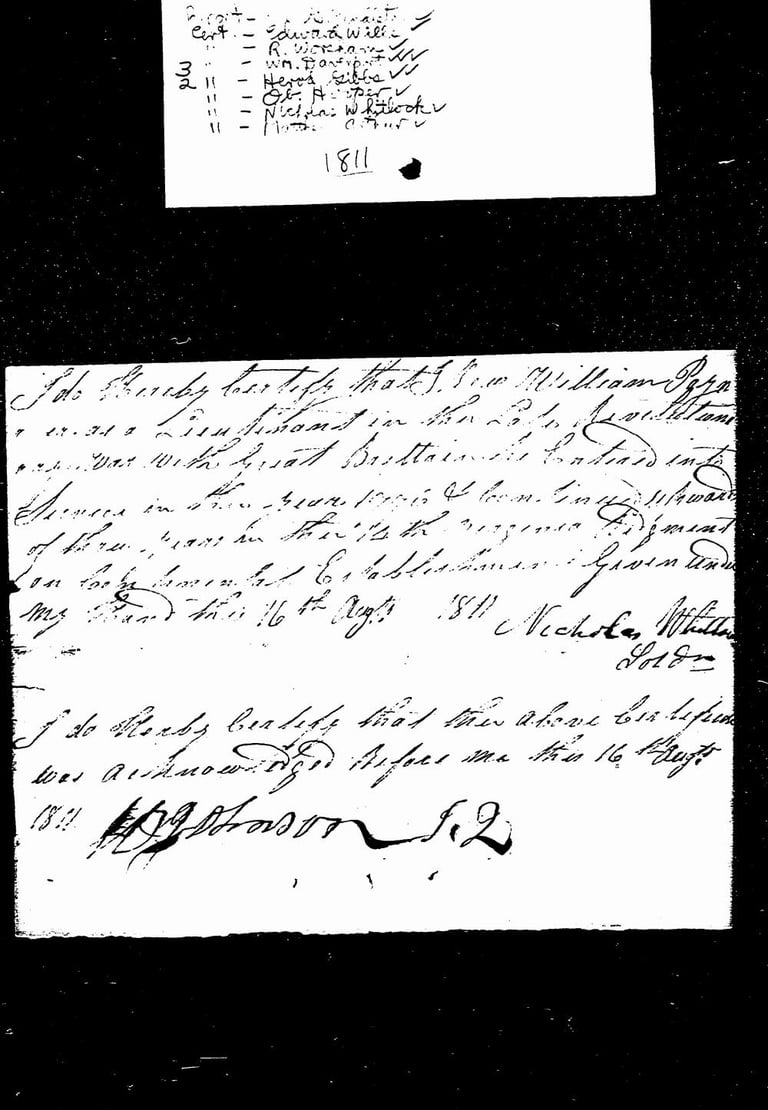 Cert - Edward Wills ✓
" - R. Workham ✓
" - Wm. Davenport ✓✓
3/2 " - Herod Gibbs ✓✓
" - Ob. Hooper ✓
" - Nicholas Whitlock ✓
" - Arthur ✓
1811
I do Hereby Certify that I New William Poyn
as a Lieutenant in the Late Revolution
ary War with Great Brittain he Entered into
Service in the year 1776 & Continued upwards
of three years in the 14th Virginia Regiment
on Continental Establishment Given under
my Hand this 16th Augt 1811
Nicholas Whitlo
Soldr
I do Herby Certify that this above Certificate
was acknowledged Before me this 16th Augt
1811 Johnson J. P